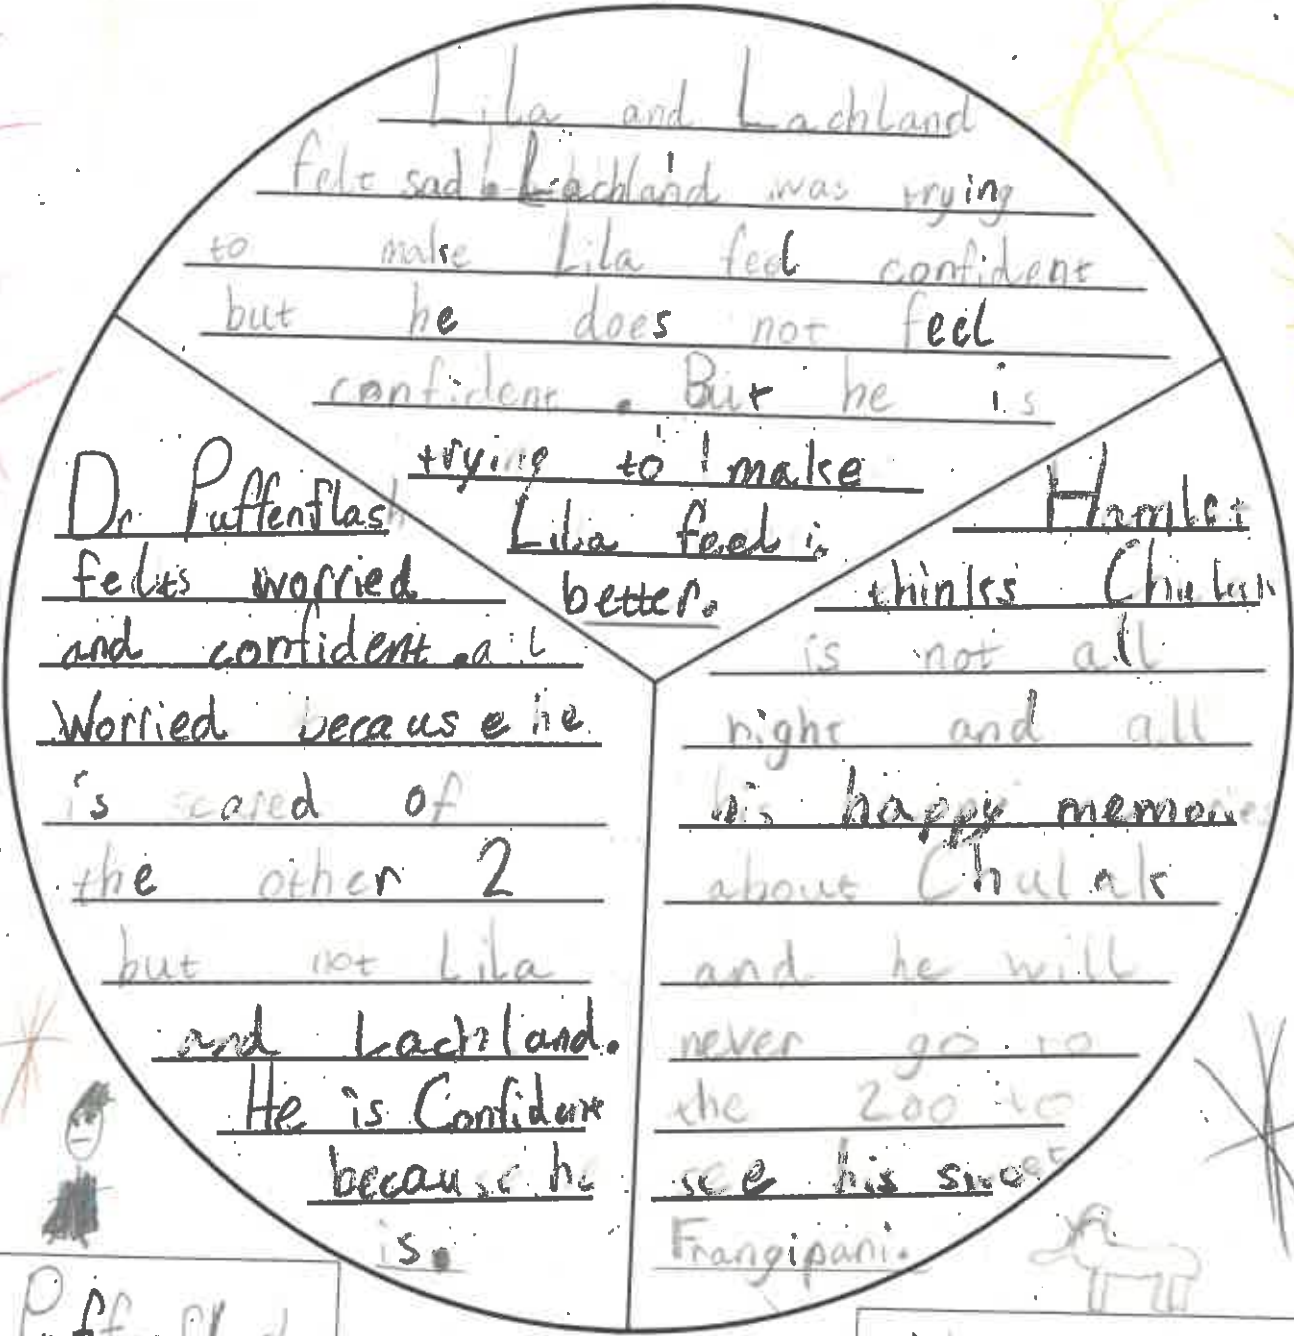 Lila and Lachland
felt sad. Lachland was trying
to make Lila feel confident
but he does not feel
confident. But he is
trying to make
Lila feel
better.
Dr Puffenflash
felts worried
and confident.
Worried because he
is scared of
the other 2
but not Lila
and Lachland.
He is Confident
because he
is.
Hamlet
thinks Chulak
is not all
right and all
his happy memories
about Chulak
and he will
never go to
the Zoo to
see his sweet
Frangipani.